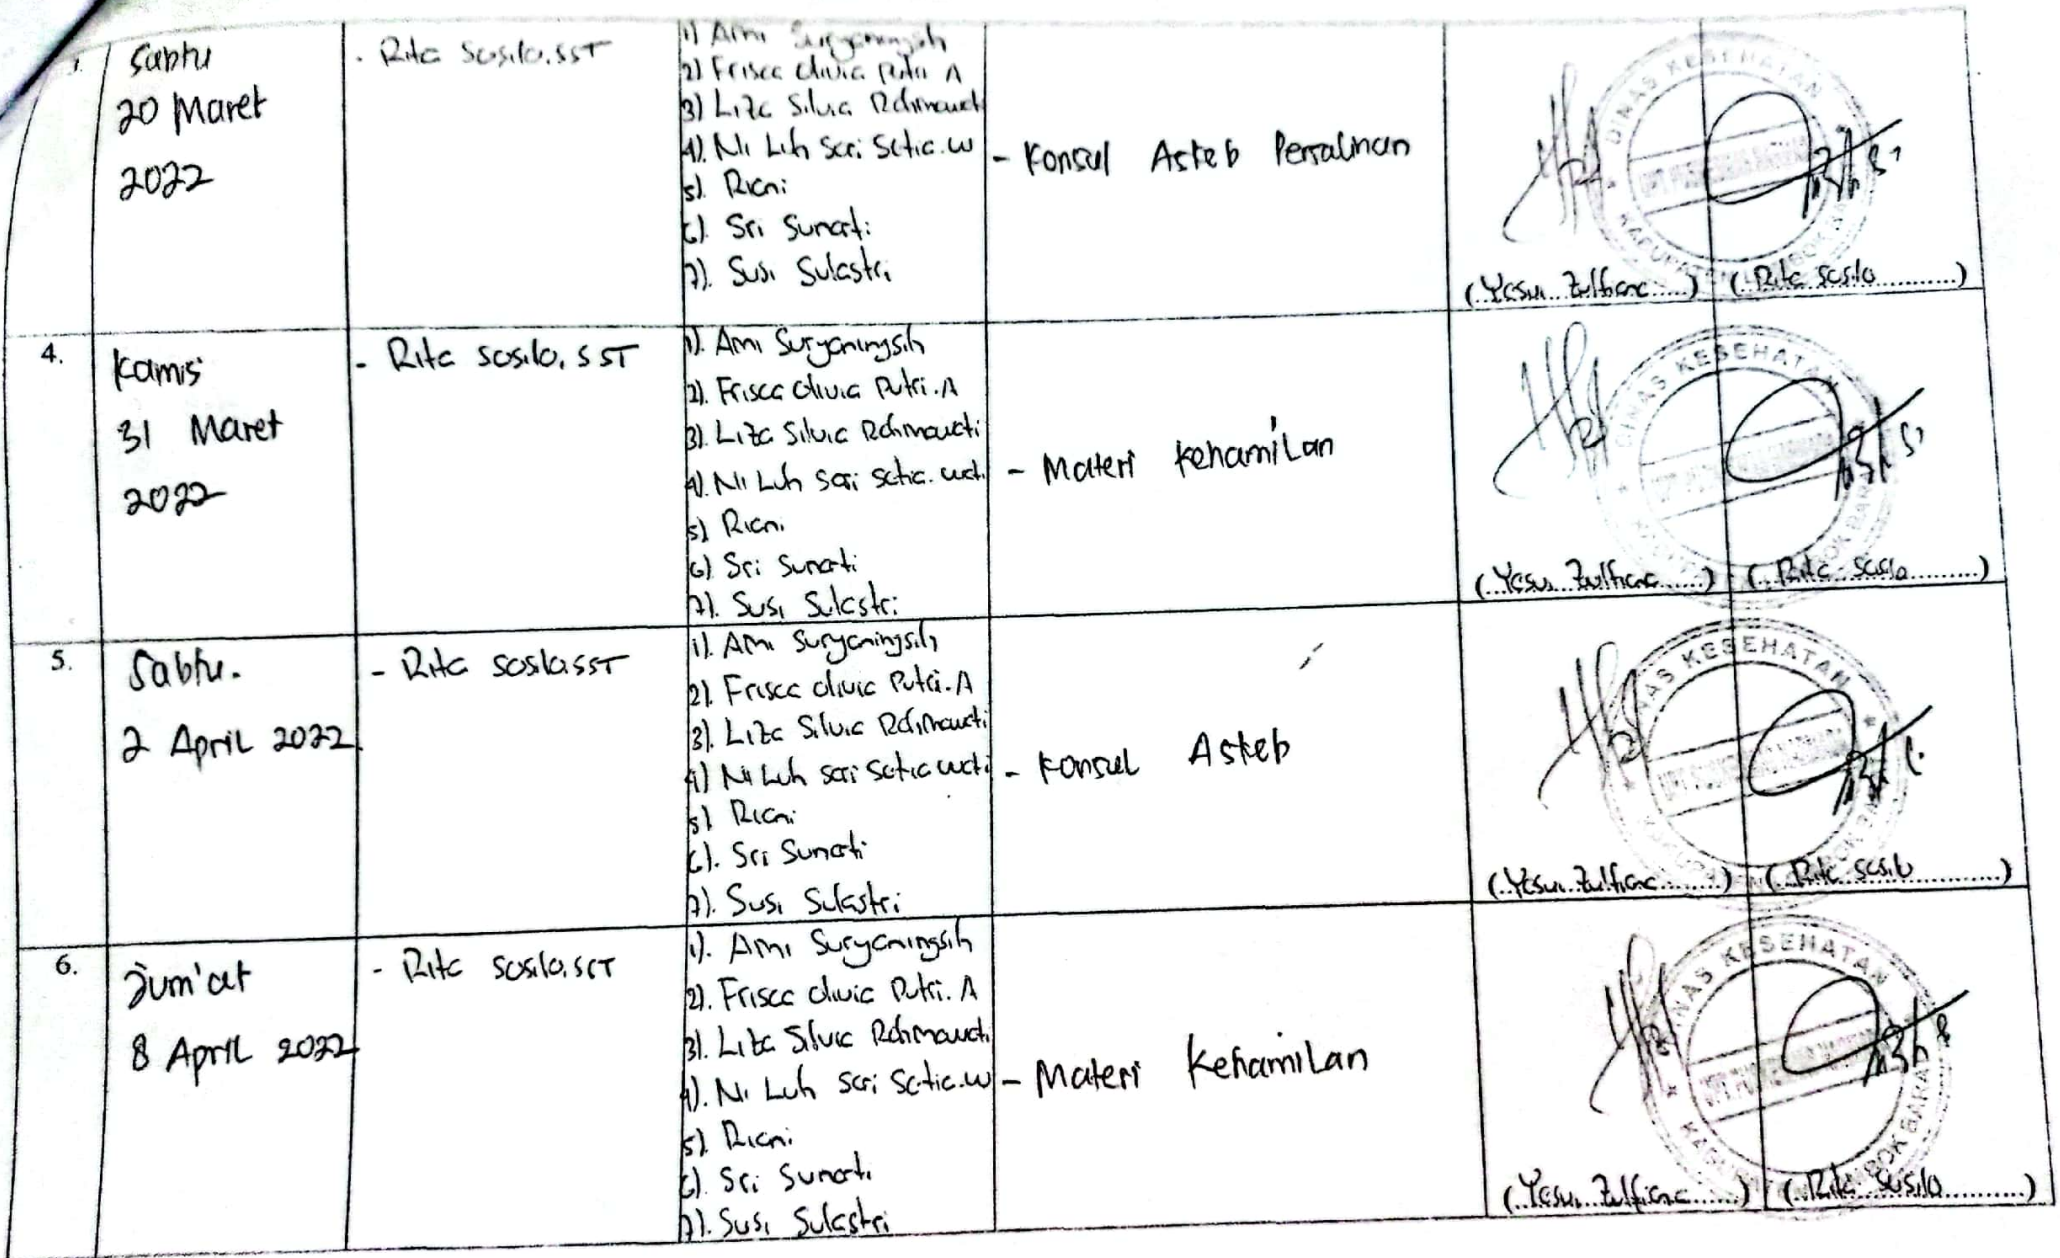 3.
Sabtu
20 Maret
2022
- Rita Sosilo.SST
1) Ami Suryaningsih
2) Frisca Olivia Putri A
3) Liza Silvia Rahmawati
4). Ni Luh Sari Setia.W
5). Riani
6). Sri Sunarti
7). Susi Sulastri
- Konsul Askeb Persalinan
DINAS KESEHATAN
(..Yesui..Zulfiana.....)
(..Rita Sosilo..........)
4.
Kamis
31 Maret
2022
- Rita Sosilo, SST
1). Ami Suryaningsih
2). Frisca Olivia Putri.A
3). Liza Silvia Rahmawati
4). Ni Luh Sari Setia.wati
5) Riani
6) Sri Sunarti
7). Susi Sulastri
- Materi Kehamilan
DINAS KESEHATAN
(..Yesui..Zulfiana.....)
(..Rita Sosilo..........)
5.
Sabtu.
2 April 2022
- Rita Sosilo.SST
1). Ami Suryaningsih
2). Frisca Olivia Putri.A
3). Liza Silvia Rahmawati
4) Ni Luh Sari Setiawati
5) Riani
6). Sri Sunarti
7). Susi Sulastri
- Konsul Askeb
DINAS KESEHATAN
(..Yesui..Zulfiana.....)
(..Rita Sosilo..........)
6.
Jum'at
8 April 2022
- Rita Sosilo.SST
1). Ami Suryaningsih
2). Frisca Olivia Putri. A
3). Liza Silvia Rahmawati
4). Ni Luh Sari Setia.W
5). Riani
6). Sri Sunarti
7). Susi Sulastri
- Materi Kehamilan
DINAS KESEHATAN
LOMBOK BARAT
(..Yesui..Zulfiana.....)
(..Rita Susilo..........)